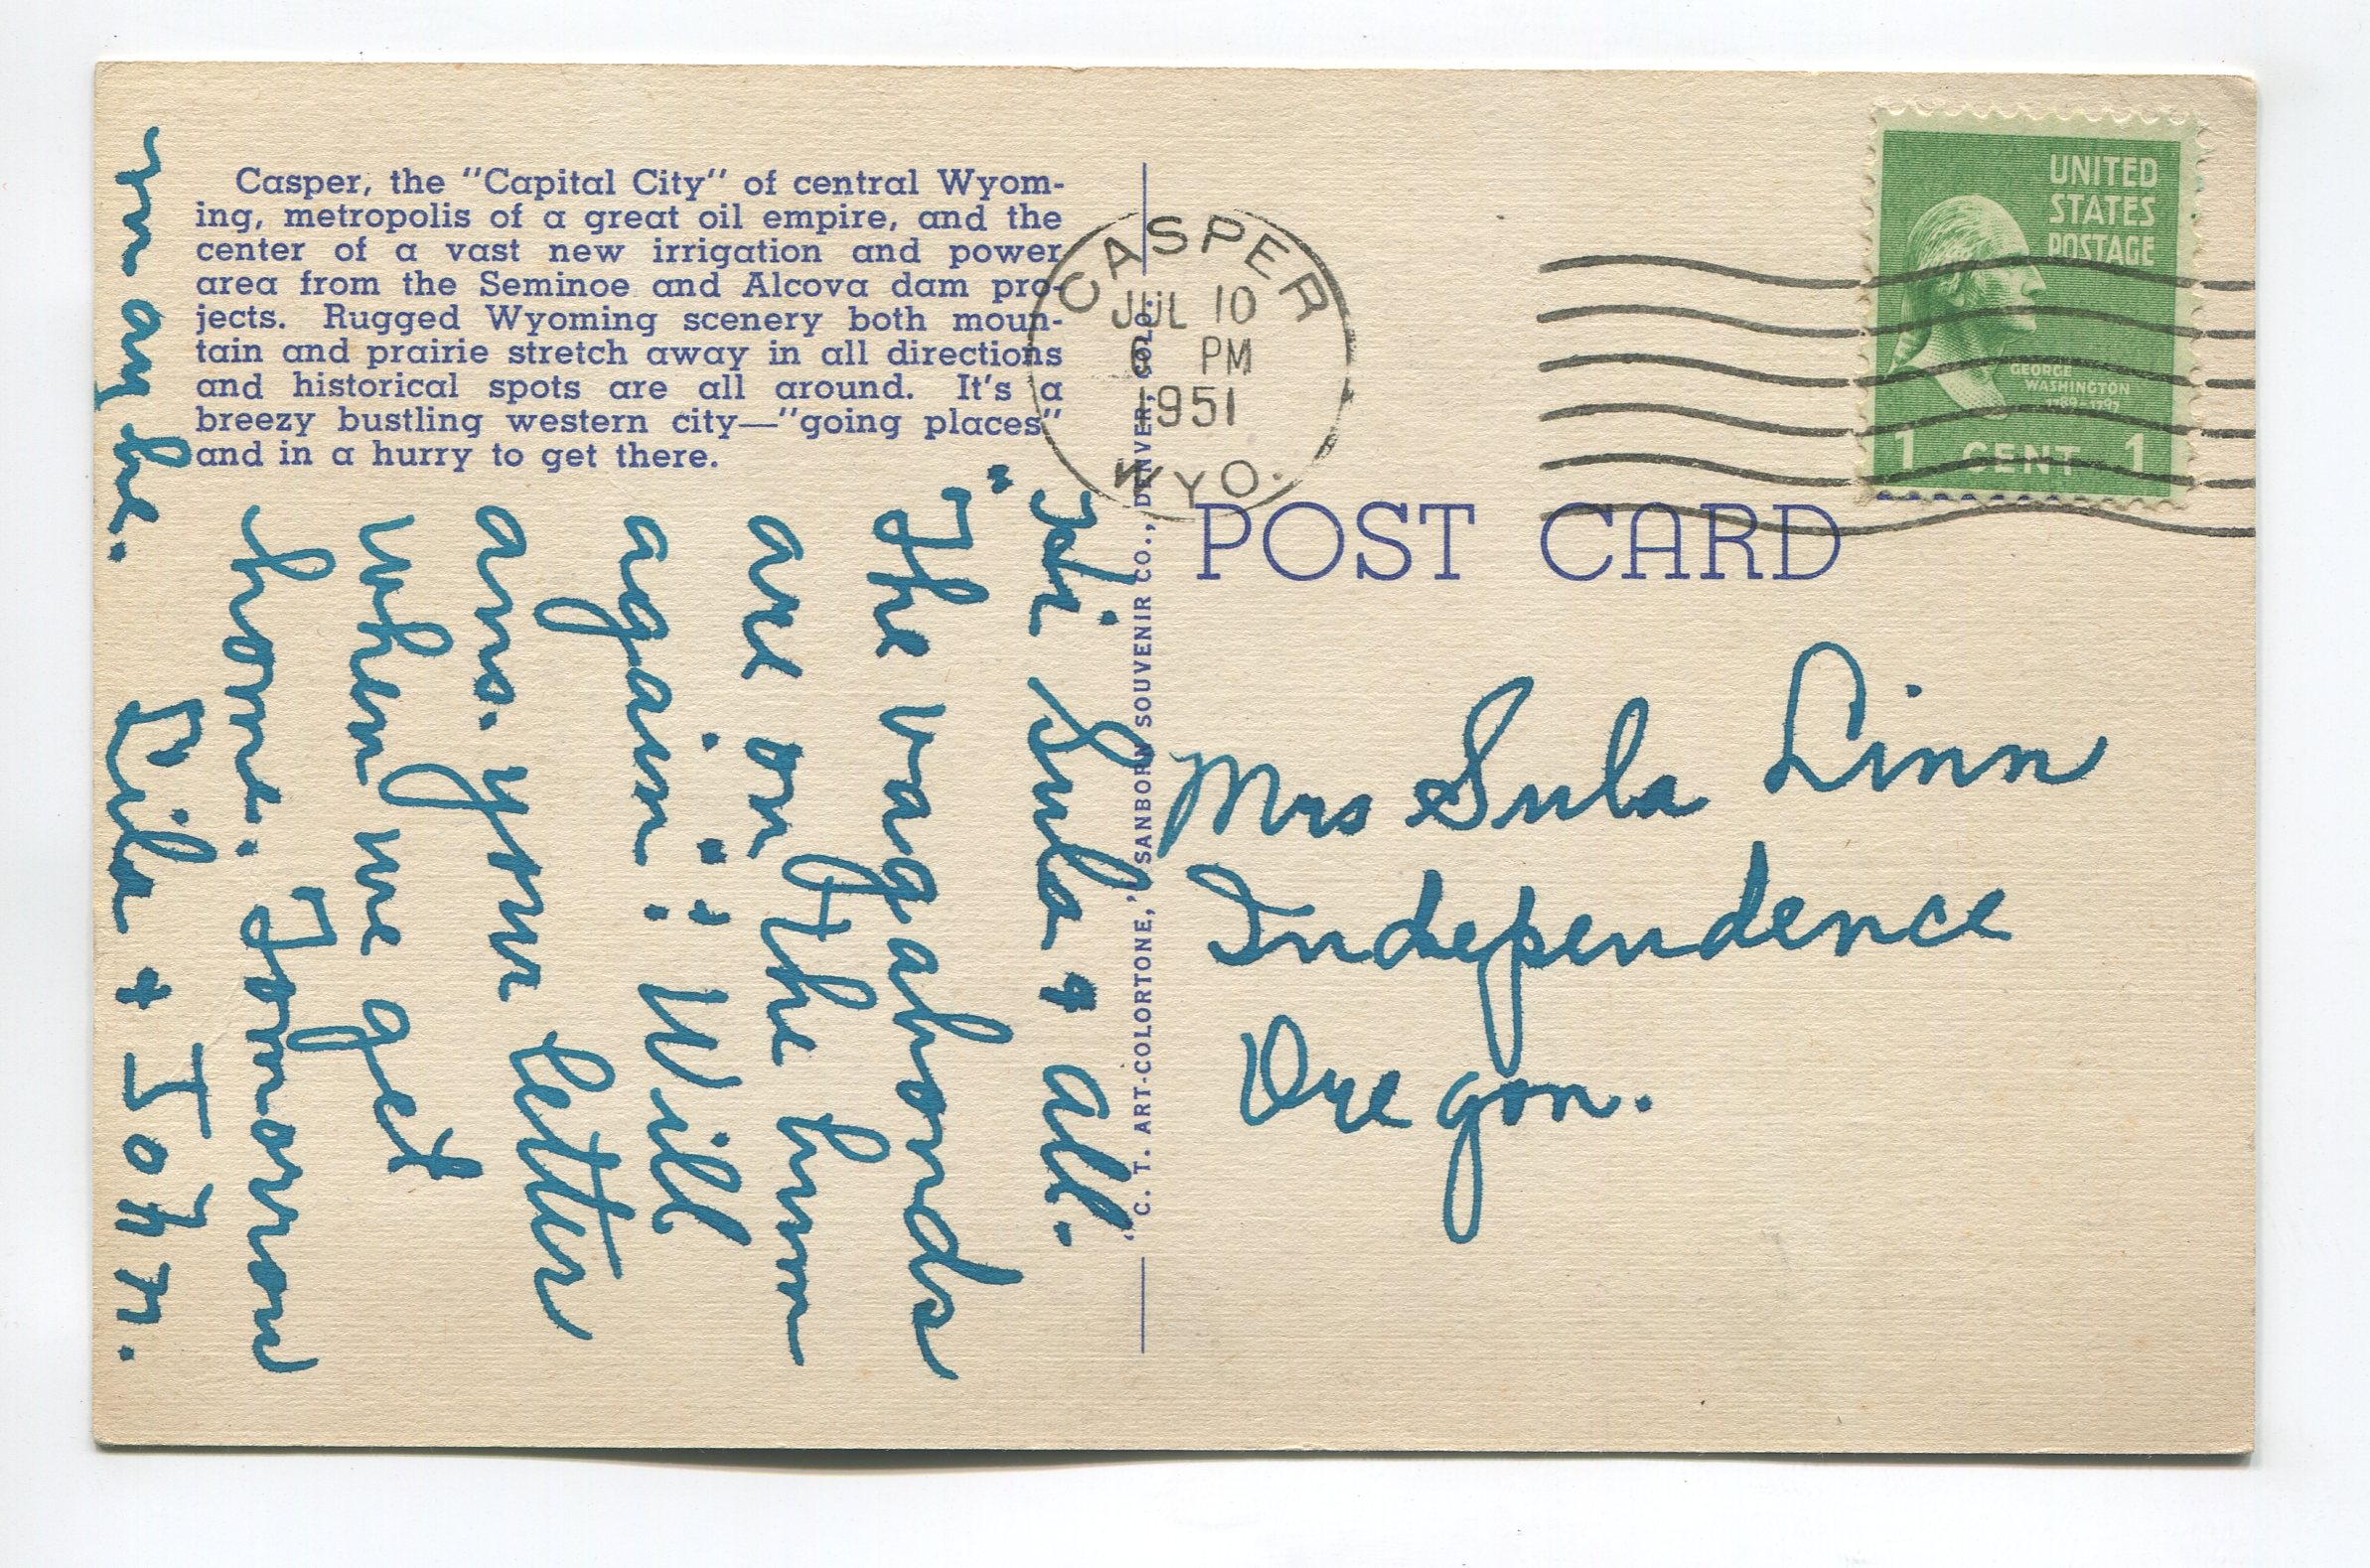 Casper, the "Capital City" of central Wyom-
ing, metropolis of a great oil empire, and the
center of a vast new irrigation and power
area from the Seminoe and Alcova dam pro-
jects. Rugged Wyoming scenery both moun-
tain and prairie stretch away in all directions
and historical spots are all around. It's a
breezy bustling western city—"going places"
and in a hurry to get there.
Hi Sula & all.
"The vagabonds
are on the hum
again"! Will
ans. your letter
when we get
home. Tomorrow
may be.
Lila + John.
"C. T. ART-COLORTONE," SANBORN SOUVENIR CO., DENVER, COLO.
CASPER
JUL 10
6 PM
1951
WYO.
UNITED
STATES
POSTAGE
GEORGE
WASHINGTON
1789-1797
1 CENT 1
POST CARD
Mrs Sula Linn
Independence
Oregon.